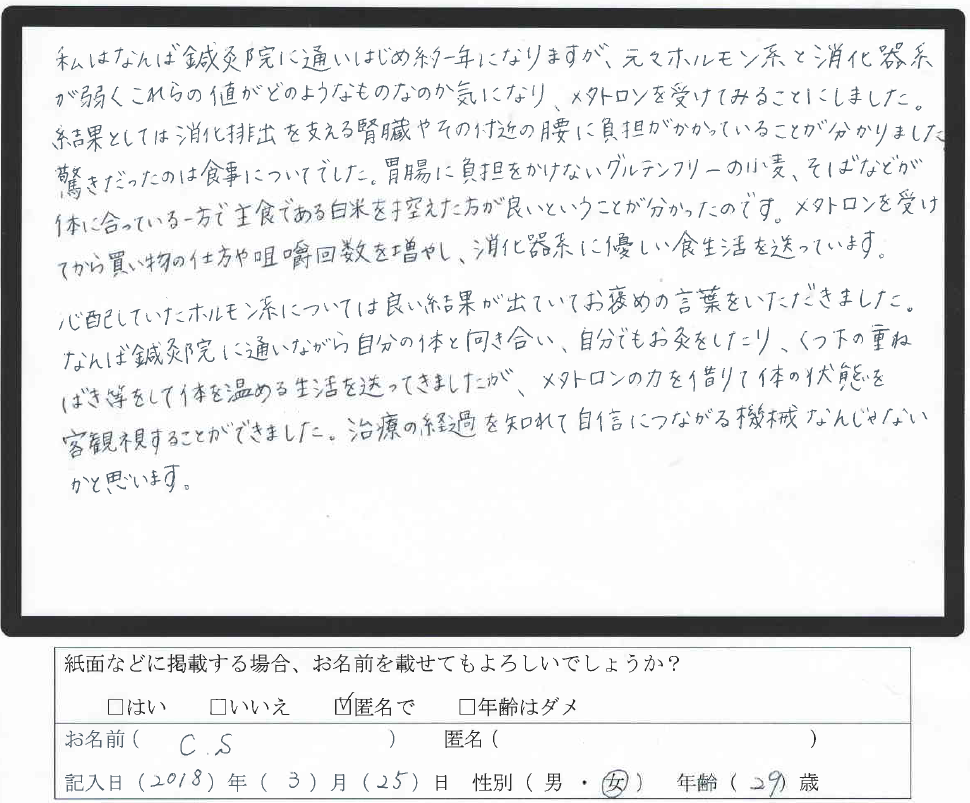 私はなんば鍼灸院に通いはじめ約一年になりますが、元々ホルモン系と消化器系
が弱くこれらの値がどのようなものなのか気になり、メタトロンを受けてみることにしました。
結果としては消化排出を支える腎臓やその付近の腰に負担がかかっていることが分かりました
驚きだったのは食事についてでした。胃腸に負担をかけないグルテンフリーの小麦、そばなどが
体に合っている一方で主食である白米を控えた方が良いということが分かったのです。メタトロンを受け
てから買い物の仕方や咀嚼回数を増やし、消化器系に優しい食生活を送っています。
心配していたホルモン系については良い結果が出ていてお褒めの言葉をいただきました。
なんば鍼灸院に通いながら自分の体と向き合い、自分でもお灸をしたり、くつ下の重ね
ばき等をして体を温める生活を送ってきましたが、メタトロンの力を借りて体の状態を
客観視することができました。治療の経過を知れて自信につながる機械なんじゃない
かと思います。
紙面などに掲載する場合、お名前を載せてもよろしいでしょうか？
□はい □いいえ ☑匿名で □年齢はダメ
お名前（ C.S ） 匿名（ ）
記入日（2018）年（3）月（25）日 性別（男・女） 年齢（29）歳